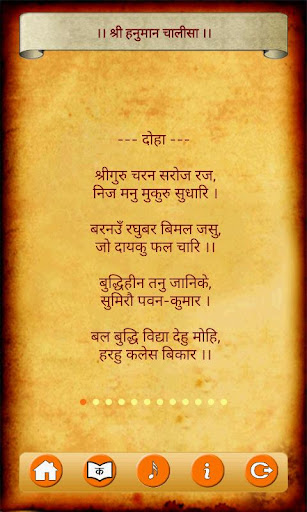 ।। श्री हनुमान चालीसा ।।
--- दोहा ---
श्रीगुरु चरन सरोज रज,
निज मनु मुकुरु सुधारि ।
बरनउँ रघुबर बिमल जसु,
जो दायकु फल चारि ।।
बुद्धिहीन तनु जानिके,
सुमिरौ पवन-कुमार ।
बल बुद्धि विद्या देहु मोहि,
हरहु कलेस बिकार ।।
क